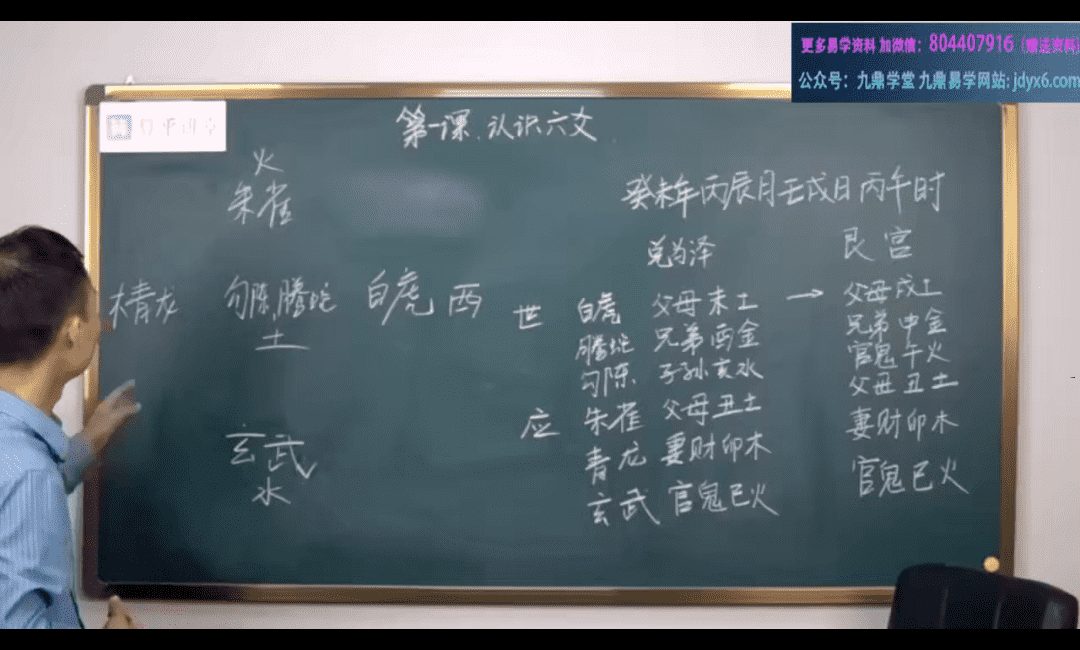 更多易学资料 加微信：804407916（赠送资料
公众号：九鼎学堂 九鼎易学网站: jdyx6.com
第一课、认识六爻
火
朱雀
木青龙 勾陈,腾蛇 白虎 西
土
玄武
水
癸未年丙辰月壬戌日丙午时
兑为泽 艮宫
世 白虎 父母未土 → 父母戌土
腾蛇 兄弟酉金 兄弟申金
勾陈 子孙亥水 官鬼午火
应 朱雀 父母丑土 父母丑土
青龙 妻财卯木 妻财卯木
玄武 官鬼巳火 官鬼巳火